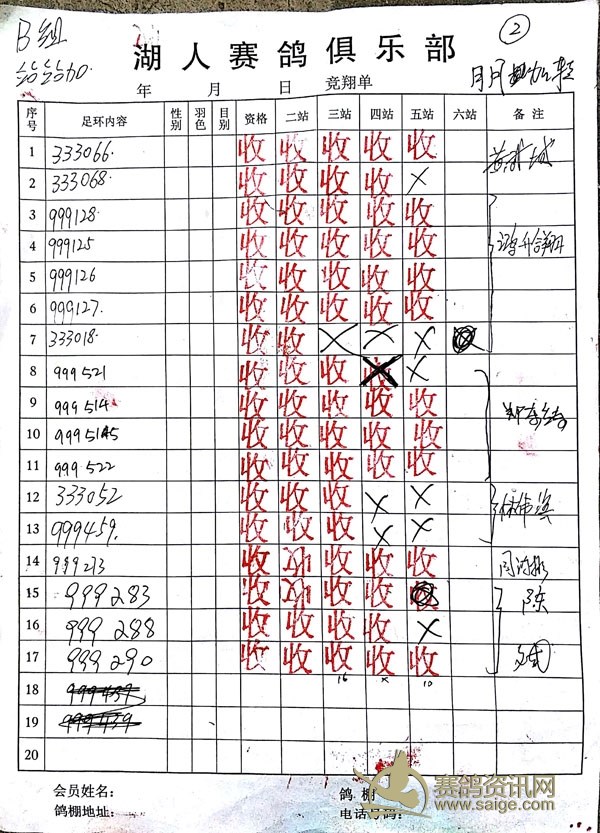 B组
②
湖人赛鸽俱乐部
年 月 日 竞翔单
序号 足环内容 性别 羽色 目别 资格 二站 三站 四站 五站 六站 备注
1 333066 收 收 收 收 收
2 333068 收 收 收 收 ×
3 999128 收 收 收 收 收
4 999125 收 收 收 收 收
5 999126 收 收 收 收 收
6 999127 收 收 收 收 收
7 333018 收 收 × × ×
8 999521 收 收 收 收 ×
9 999514 收 收 收 收 收
10 收 收 收 收 收
11 999522 收 收 收 收 收
12 333052 收 收 收 × ×
13 999459 收 收 收 × ×
14 999273 收 收 收 收 收
15 999283 收 收 收 收
16 999288 收 收 收 收 ×
17 999290 收 收 收 收 收
16 × 10
18 999439
19 999439
20
会员姓名:
鸽棚地址:
鸽棚
电话号码:
赛鸽资讯网
www.saige.com